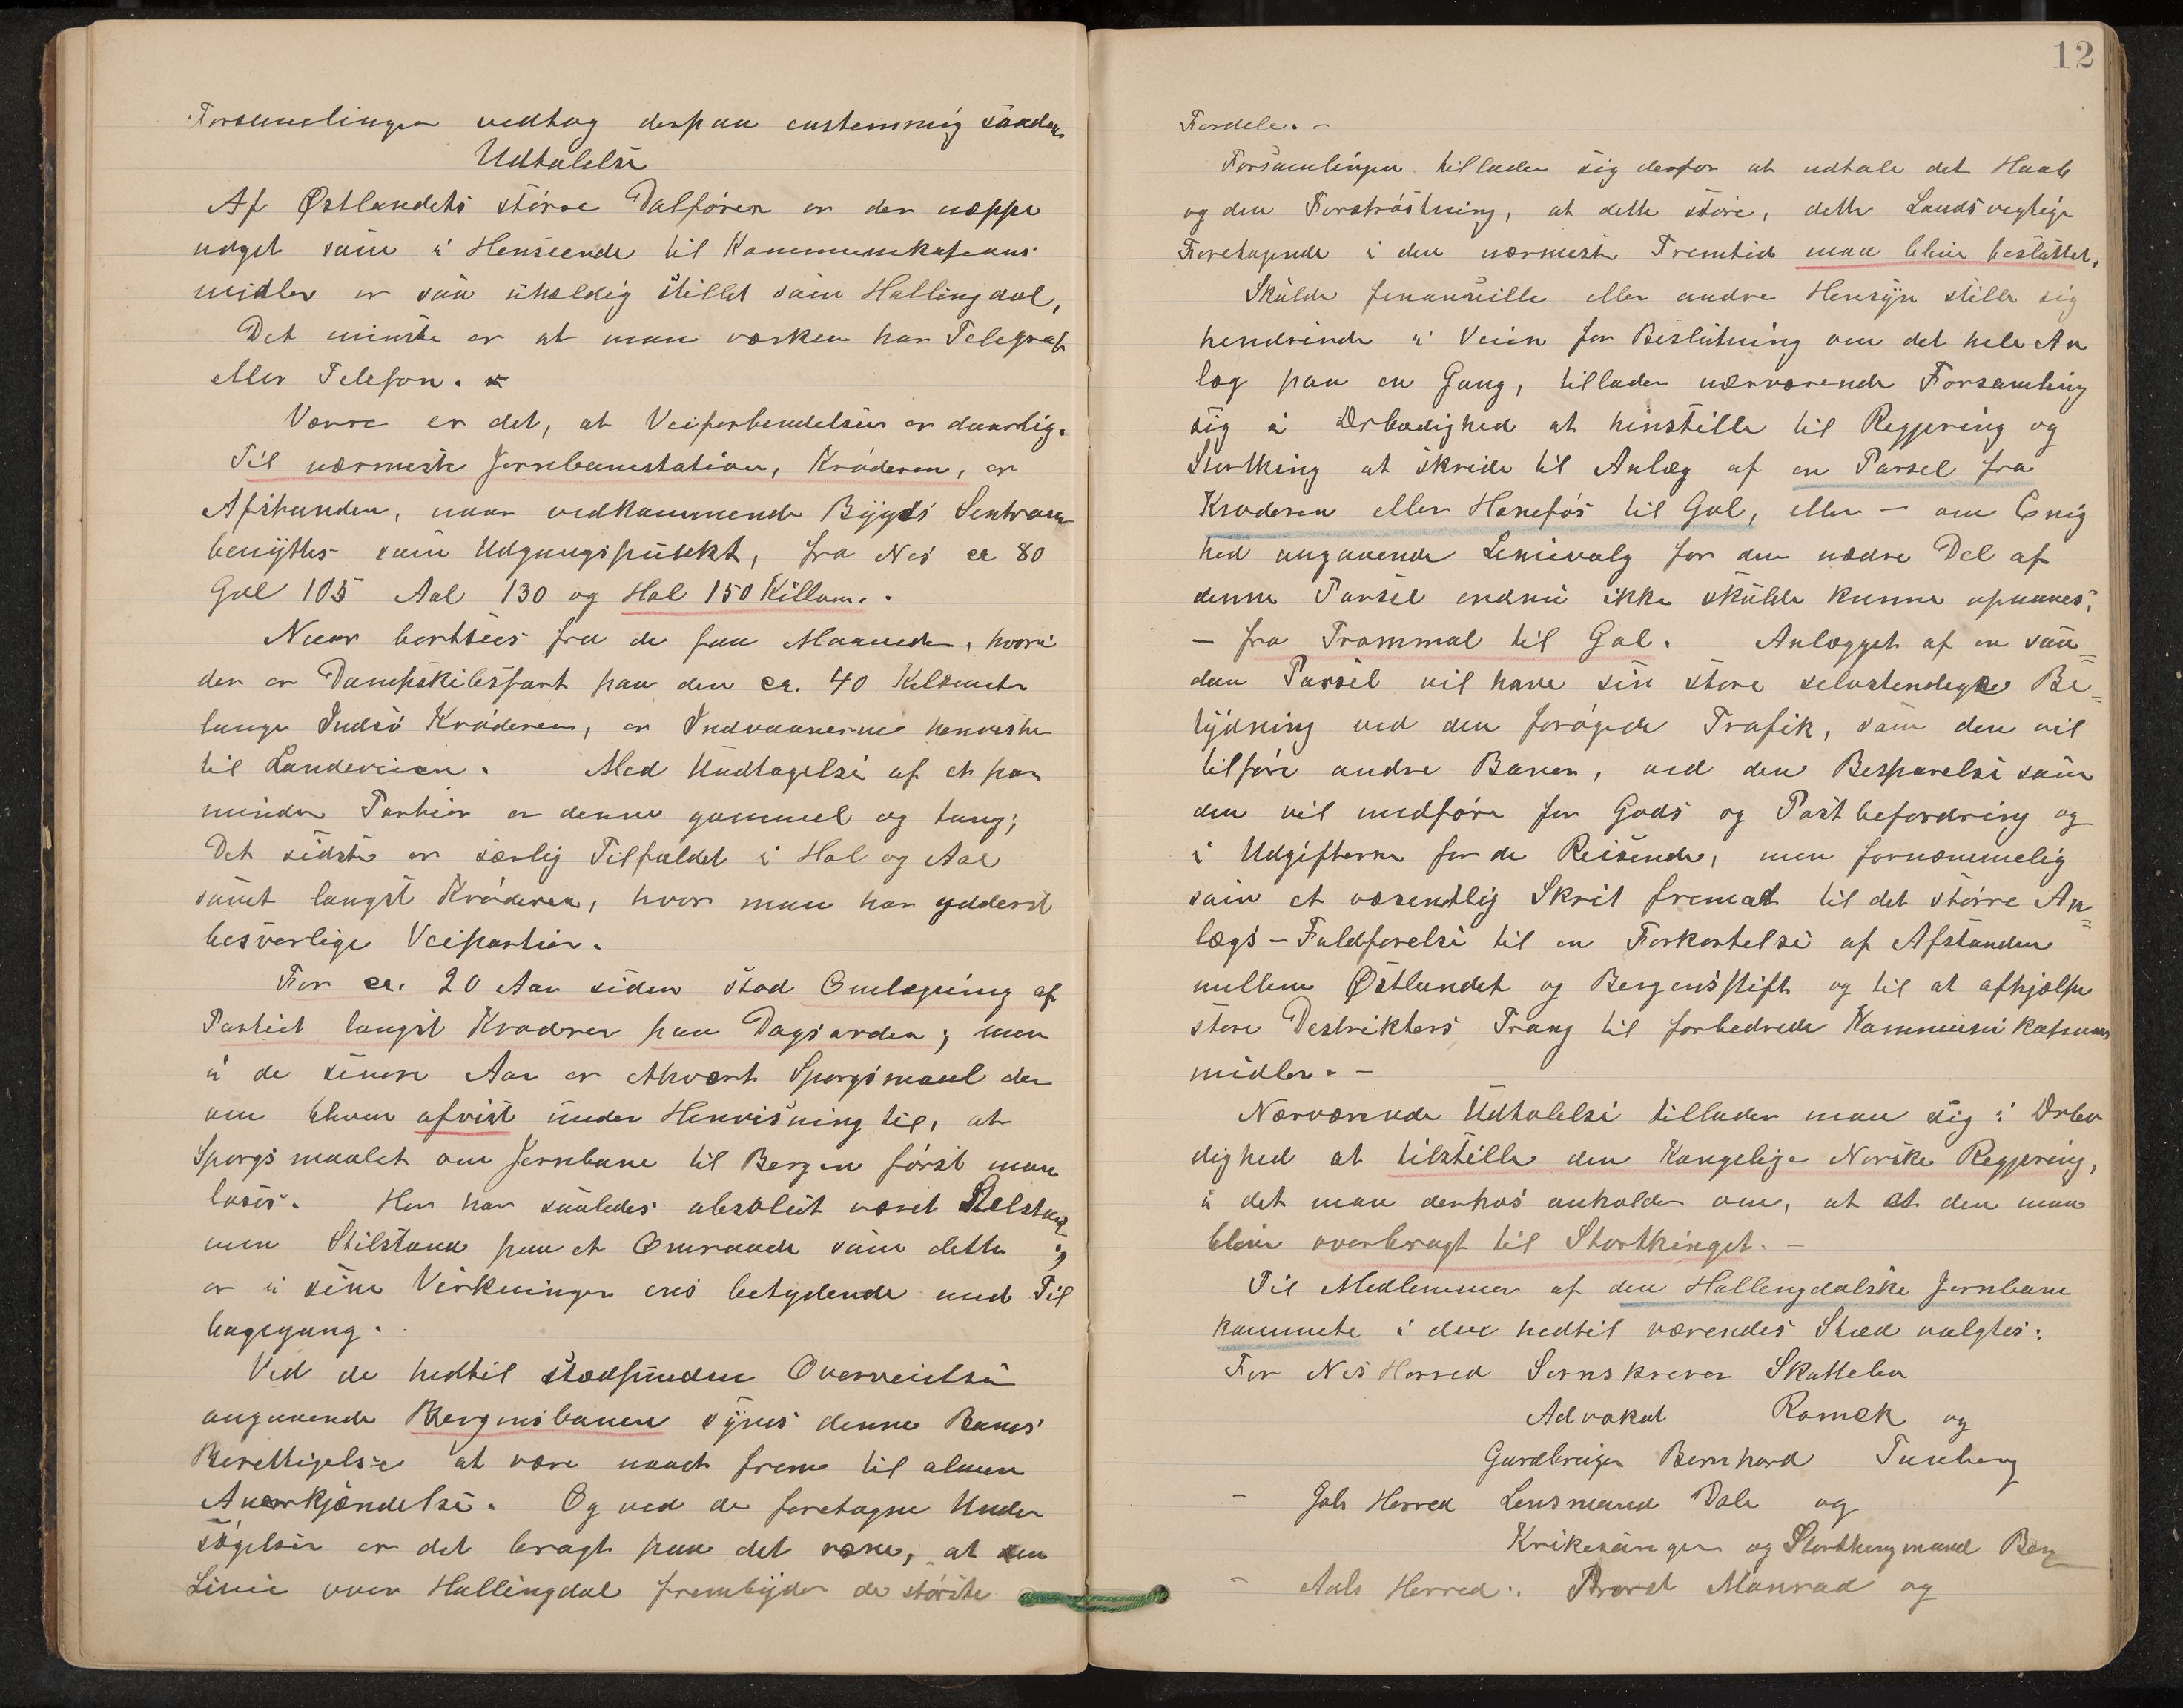 Forsamlingen vedtog derpaa enstemmig saadan
Udtalelse
Af Østlandets større Dalføren er der neppe
noget som i Henseende til Kommunikations
midler er saa uheldig stillet som Hallingdal,
Det minste er at man værken har Telegraf
eller Telefon.
Værre er det, at Veiforbendelsen er daarlig.
Til nærmeste Jernbanestation, Krøderen, er
Afstanden, naar vedkommende Bygds Sentrum
benyttes som Udgangspunkt, fra Nes ca 80
Gol 105 Aal 130 og Hol 150 Killom..
Naar bortsees fra de faa Maaneder, hvori
der er Dampskibsfart paa den ca. 40 Kilometer
lange Indsø Krøderen, er Indvaanerne henviste
til Landeveien. Med Undtagelse af et par
mindre Partier er denne gammel og tung;
Det sidste er særlig Tilfældet i Hol og Aal
samt langst Krøderen, hvor man har ydderst
besverlige Veipartier.
For ca. 20 Aar siden stod Omlægning af
Partiet langst Krøderen paa Dagsorden; men
i de senere Aar er ethvert Spørgsmaal der
om bleven afvist under Henvisning til, at
Spørgsmaalet om Jernbane til Bergen først maa
løses. Her har saaledes absolut været Stilstand
men Stilstand paa et Omraade som dette;
er i sine Virkninger ens betydende med Til
bagegang.
Ved de hedtil stedfundne Overveielser
angaaende Bergensbanen synes denne Banes
Berettigelse at være naaet frem til almen
Anerkjendelse. Og ved de foretagne Under
søgelser er det bragt paa det rene, at den
Linie over Hallingdal frembyder de største
12
Fordele. -
Forsamlingen tillader sig derfor at udtale det Haab
og den Fortrøstning, at dette store, dette Landsvegtige
Foretagende i den nærmeste Fremtid maa blive besluttet,
Skulde finansielle eller andre Hensyn stille sig
hendrende i Veien for Beslutning om det hele An
læg paa en Gang, tillader nærværende Forsamling
sig i Ærbødighed at hinstille til Regjering og
Storthing at skride til Anlæg af en Parsel fra
Krøderen eller Hønefos til Gol, eller - om Enig
hed angaaende Linievalg for den nedre Del af
denne Parsel endnu ikke skulde kunne opnaaes,
- fra Trommal til Gol. Anlægget af en saa=
dan Parsel vil have sin store selvstendige Be=
tydning ved den forøgede Trafik, som den vil
tilføre andre Baner, ved den Besparelse som
den vil medføre for Gods og Postbefordring og
i Udgifterne for de Reisende, men fornemmelig
som et væsentlig Skrit fremad til det større An=
lægs-Fuldførelse til en Forkortelse af Afstanden
mellem Østlandet og Bergens stift og til at afhjælpe
store Destrikters Trang til forbedrede Kommunikations
midler. -
Nærværende Udtalelse tillader man sig i Ærbø
dighed at tilstille den Kongelige Norske Regjering,
i det man derhos anholder om, at at den maa
blive overbragt til Storthinget. -
Til Medlemmer af den Hallengdalske Jernbane
kommete i den hedtil værendes Sted valgtes:
For Nes Herred Sorenskriver Skattebo
Advokat Romek og
Gardbruger Bernhard Tunberg
- Gols Herred Lensmand Dale og
Kirkesanger og Storthingmand Berg
- Aals Herred: Provst Monrad og